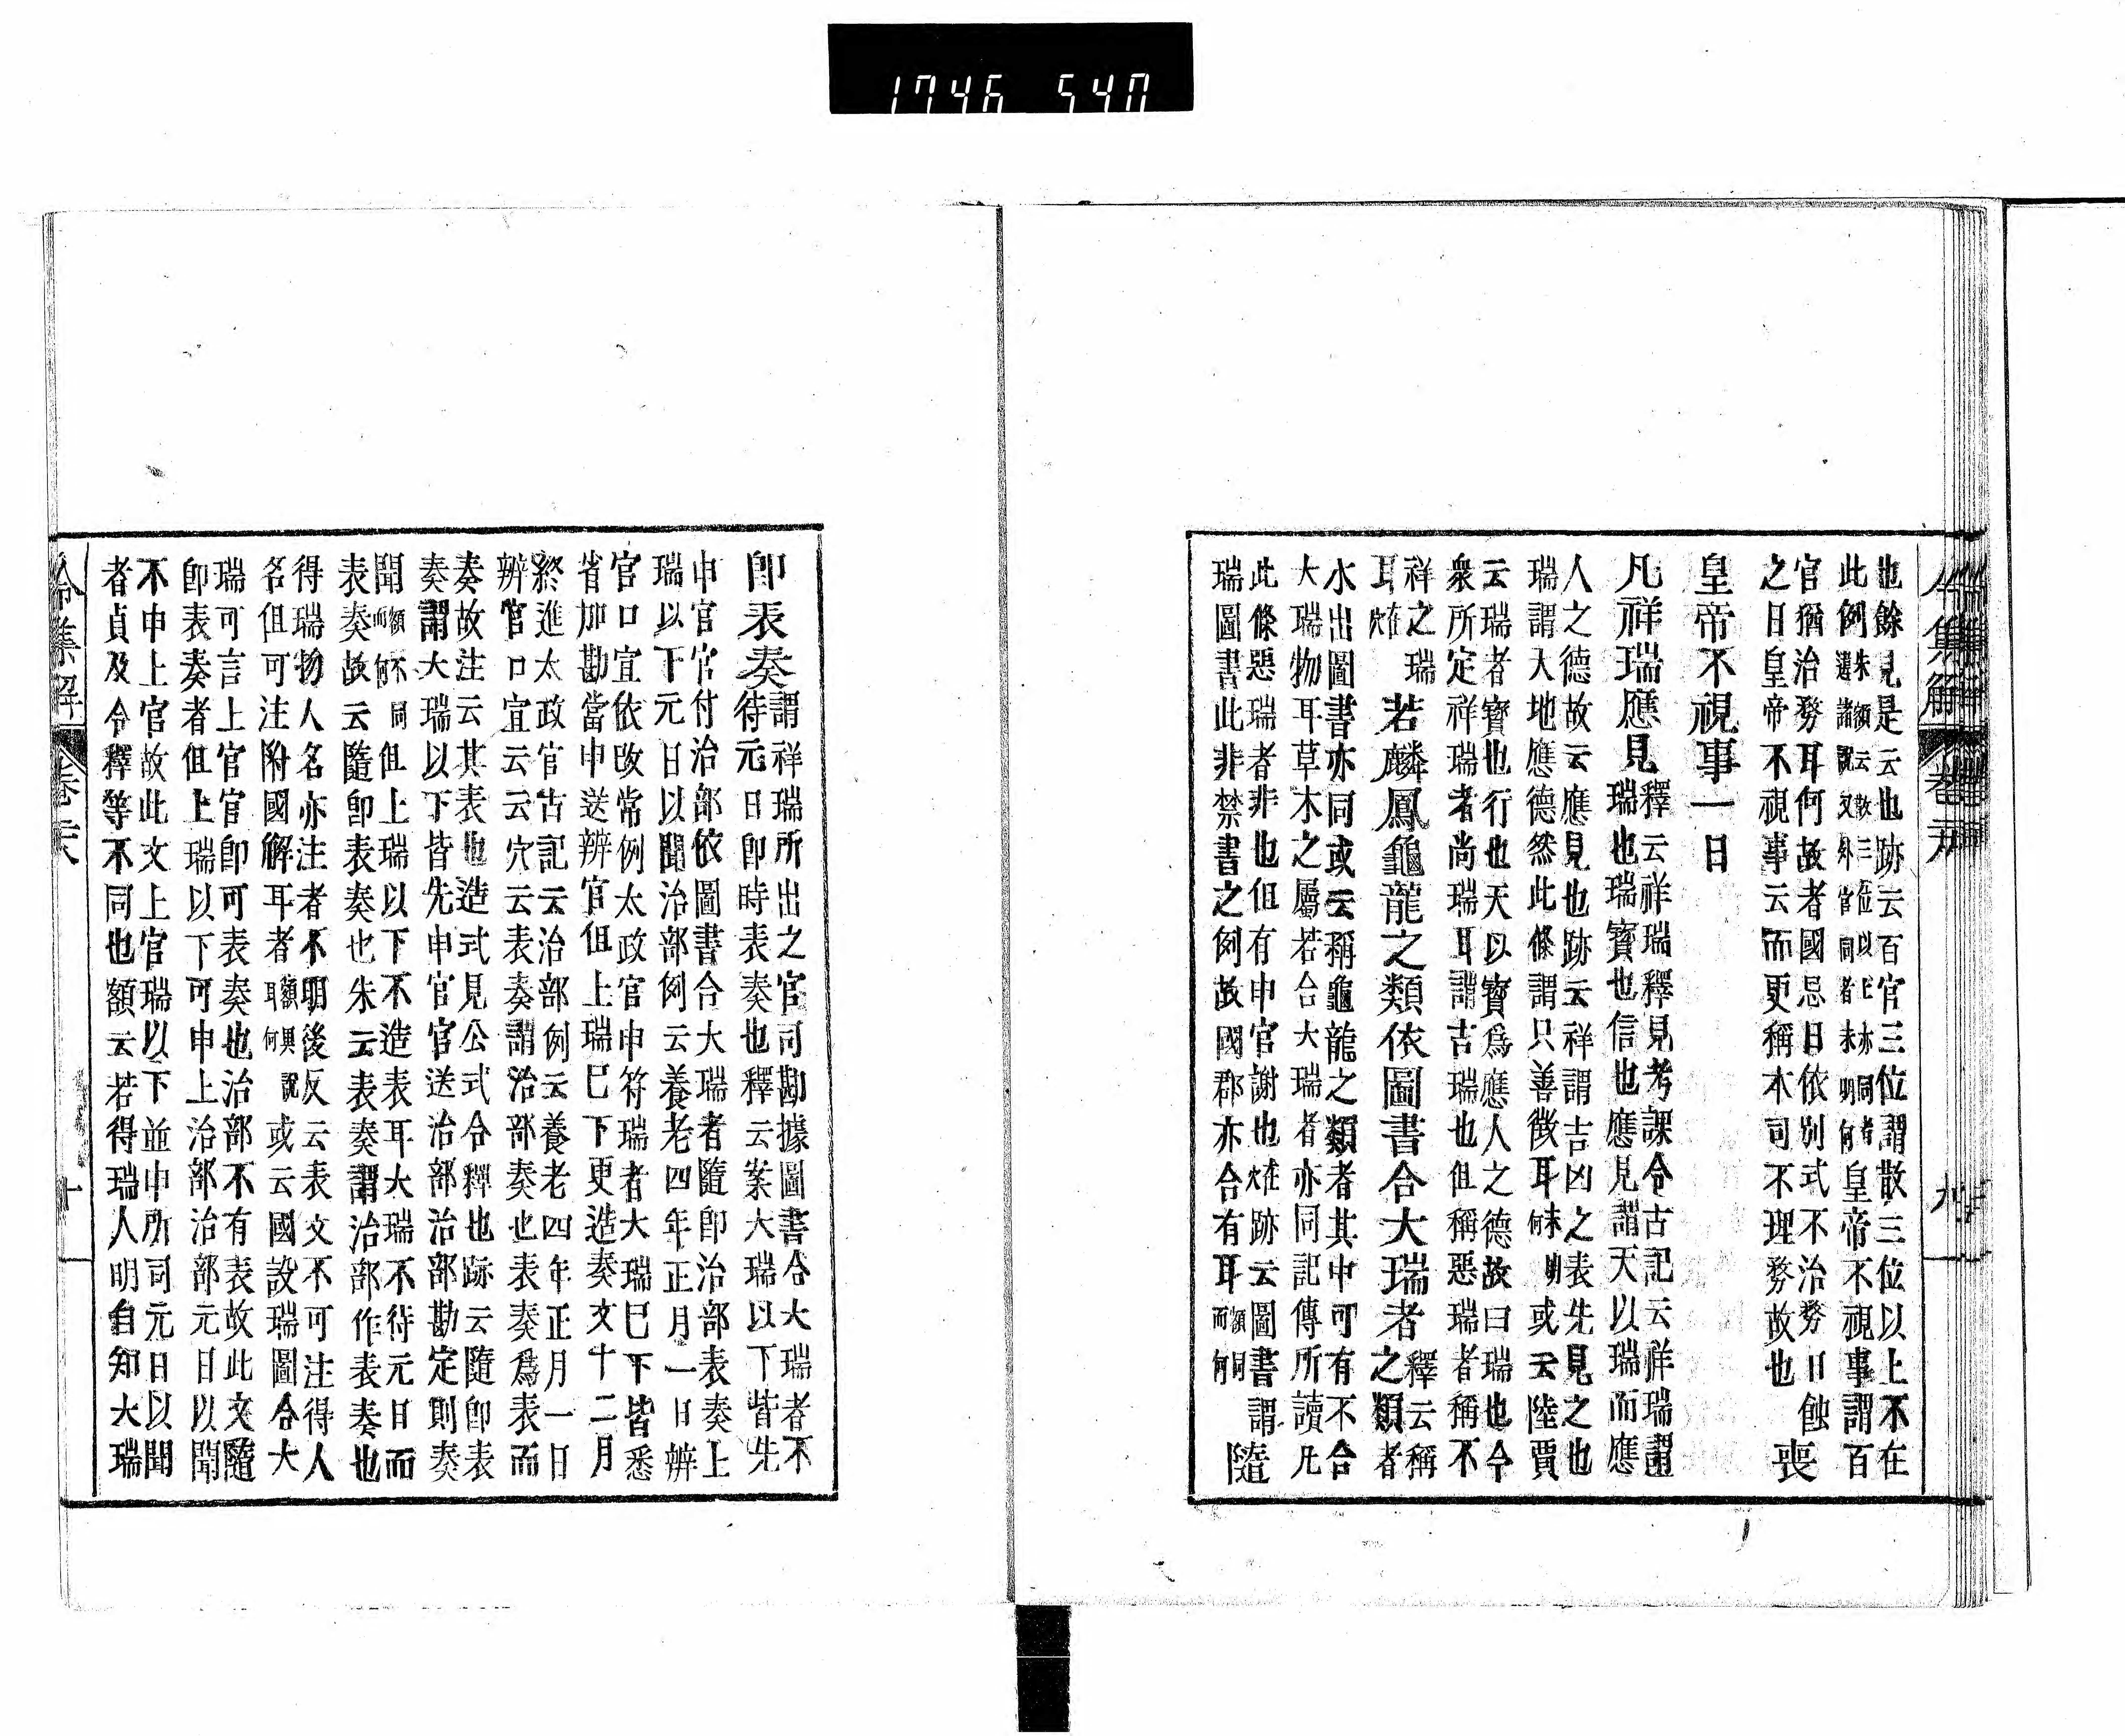 1746 540
也餘見是云也跡云百官三位謂散三位以上不在
此例朱額云散三位以上亦同者
還諸說又外官同者未明何皇帝不視事謂百
官猶治務耳何故者國忌日依別式不治務日蝕
之日皇帝不視事云而更稱本司不理務故也
喪
皇帝不視事一日
凡祥瑞應見
釋云祥瑞釋見考課令古記云祥瑞謂
瑞也瑞寶也信也應見謂天以瑞而應
人之德故云應見也跡云祥謂吉凶之表先見之也
瑞謂天地應德然此條謂只善徵耳何未明或云陸賈
云瑞者寶也行也天以寶爲應人之德故曰瑞也今
衆所定祥瑞者尚瑞耳謂吉瑞也但稱惡瑞者稱不
祥之瑞
耳在穴
若麟鳳龜龍之類依圖書合大瑞者
釋云稱
之類者
水出圖書亦同或云稱龜龍之類者其中可有不合
大瑞物耳草木之屬若合大瑞者亦同記傳所讀凡
此條惡瑞者非也但有申官謝也在穴跡云圖書謂
瑞圖書此非禁書之例故國郡亦合有耳額同
而何
隨
卽表奏
謂祥瑞所出之官司勘據圖書合大瑞者不
待元日卽時表奏也釋云案大瑞以下皆先
申官官付治部依圖書合大瑞者隨卽治部表奏上
瑞以下元日以聞治部例云養老四年正月一日辨
官口宣依改常例太政官申符瑞者大瑞巳下皆悉
省加勘當申送辨官但上瑞巳下更造奏文十二月
終進太政官古記云治部例云養老四年正月一日
辨官口宣云云穴云表奏謂治部奏也表奏爲表而
奏故注云其表也造式見公式令釋也跡云隨卽表
奏謂大瑞以下皆先申官官送治部治部勘定則奏
聞額不同
而何但上瑞以下不造表耳大瑞不待元日而
表奏故云隨卽表奏也朱云表奏謂治部作表奏也
得瑞物人名亦注者不明後反云表文不可注得人
名但可注附國解耳者額與說
耳何或云國設瑞圖合大
瑞可言上官官卽可表奏也治部不有表故此文隨
卽表奏者但上瑞以下可申上治部治部元日以聞
不申上官故此文上官瑞以下並申所司元日以聞
者貞及令釋等不同也額云若得瑞人明自知大瑞
令集解 卷六 十